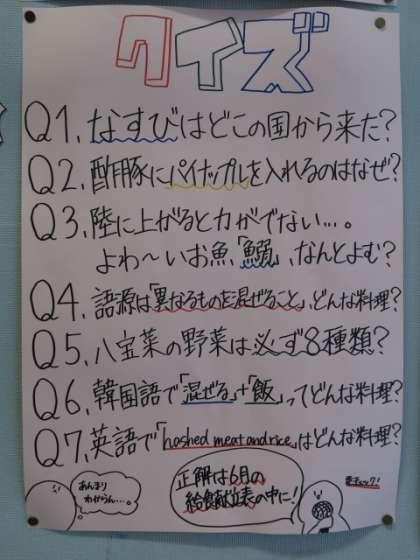 クイズ
Q1.なすびはどこの国から来た?
Q2.酢豚にパイナップルを入れるのはなぜ?
Q3.陸に上がると力がでない…。
よわ～いお魚「鰯」、なんとよむ?
Q4.語源は「異なるものを混ぜること」、どんな料理?
Q5.八宝菜の野菜は必ず8種類?
Q6.韓国語で「混ぜる」+「飯」ってどんな料理?
Q7.英語で「hashed meat and rice」はどんな料理?
あんまり
わからん…。
正解は6月の
給食献立表の中に!
要チェック!